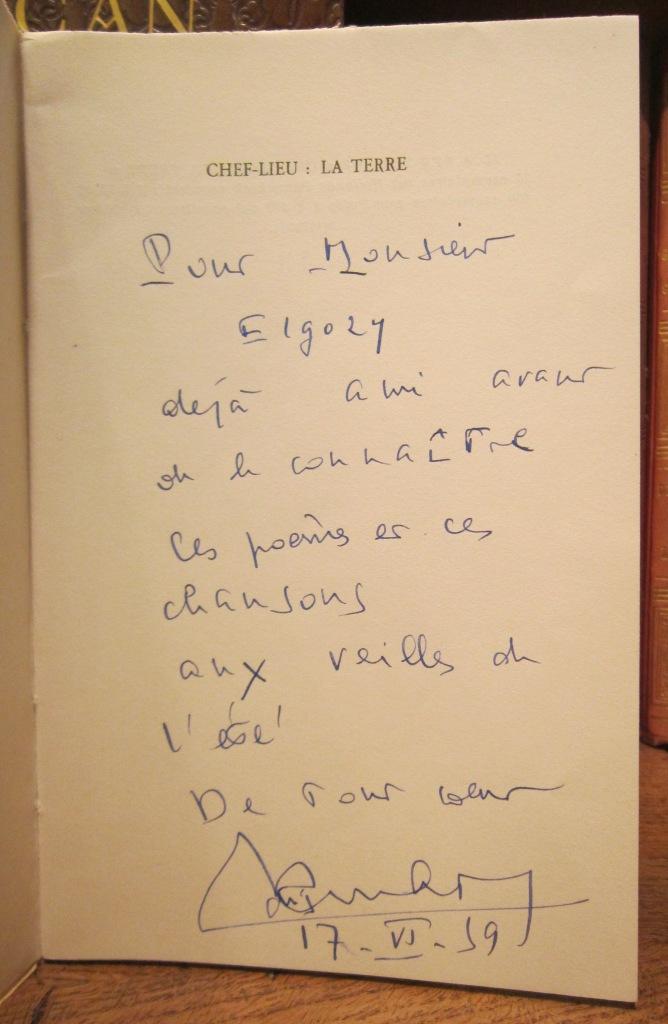 CAN
CHEF-LIEU : LA TERRE
Pour Monsieur
Elgozy
déjà ami avant
de le connaître
Ces poèmes et ces
chansons
aux veilles de
l'été
De tout cœur
17-VI-59